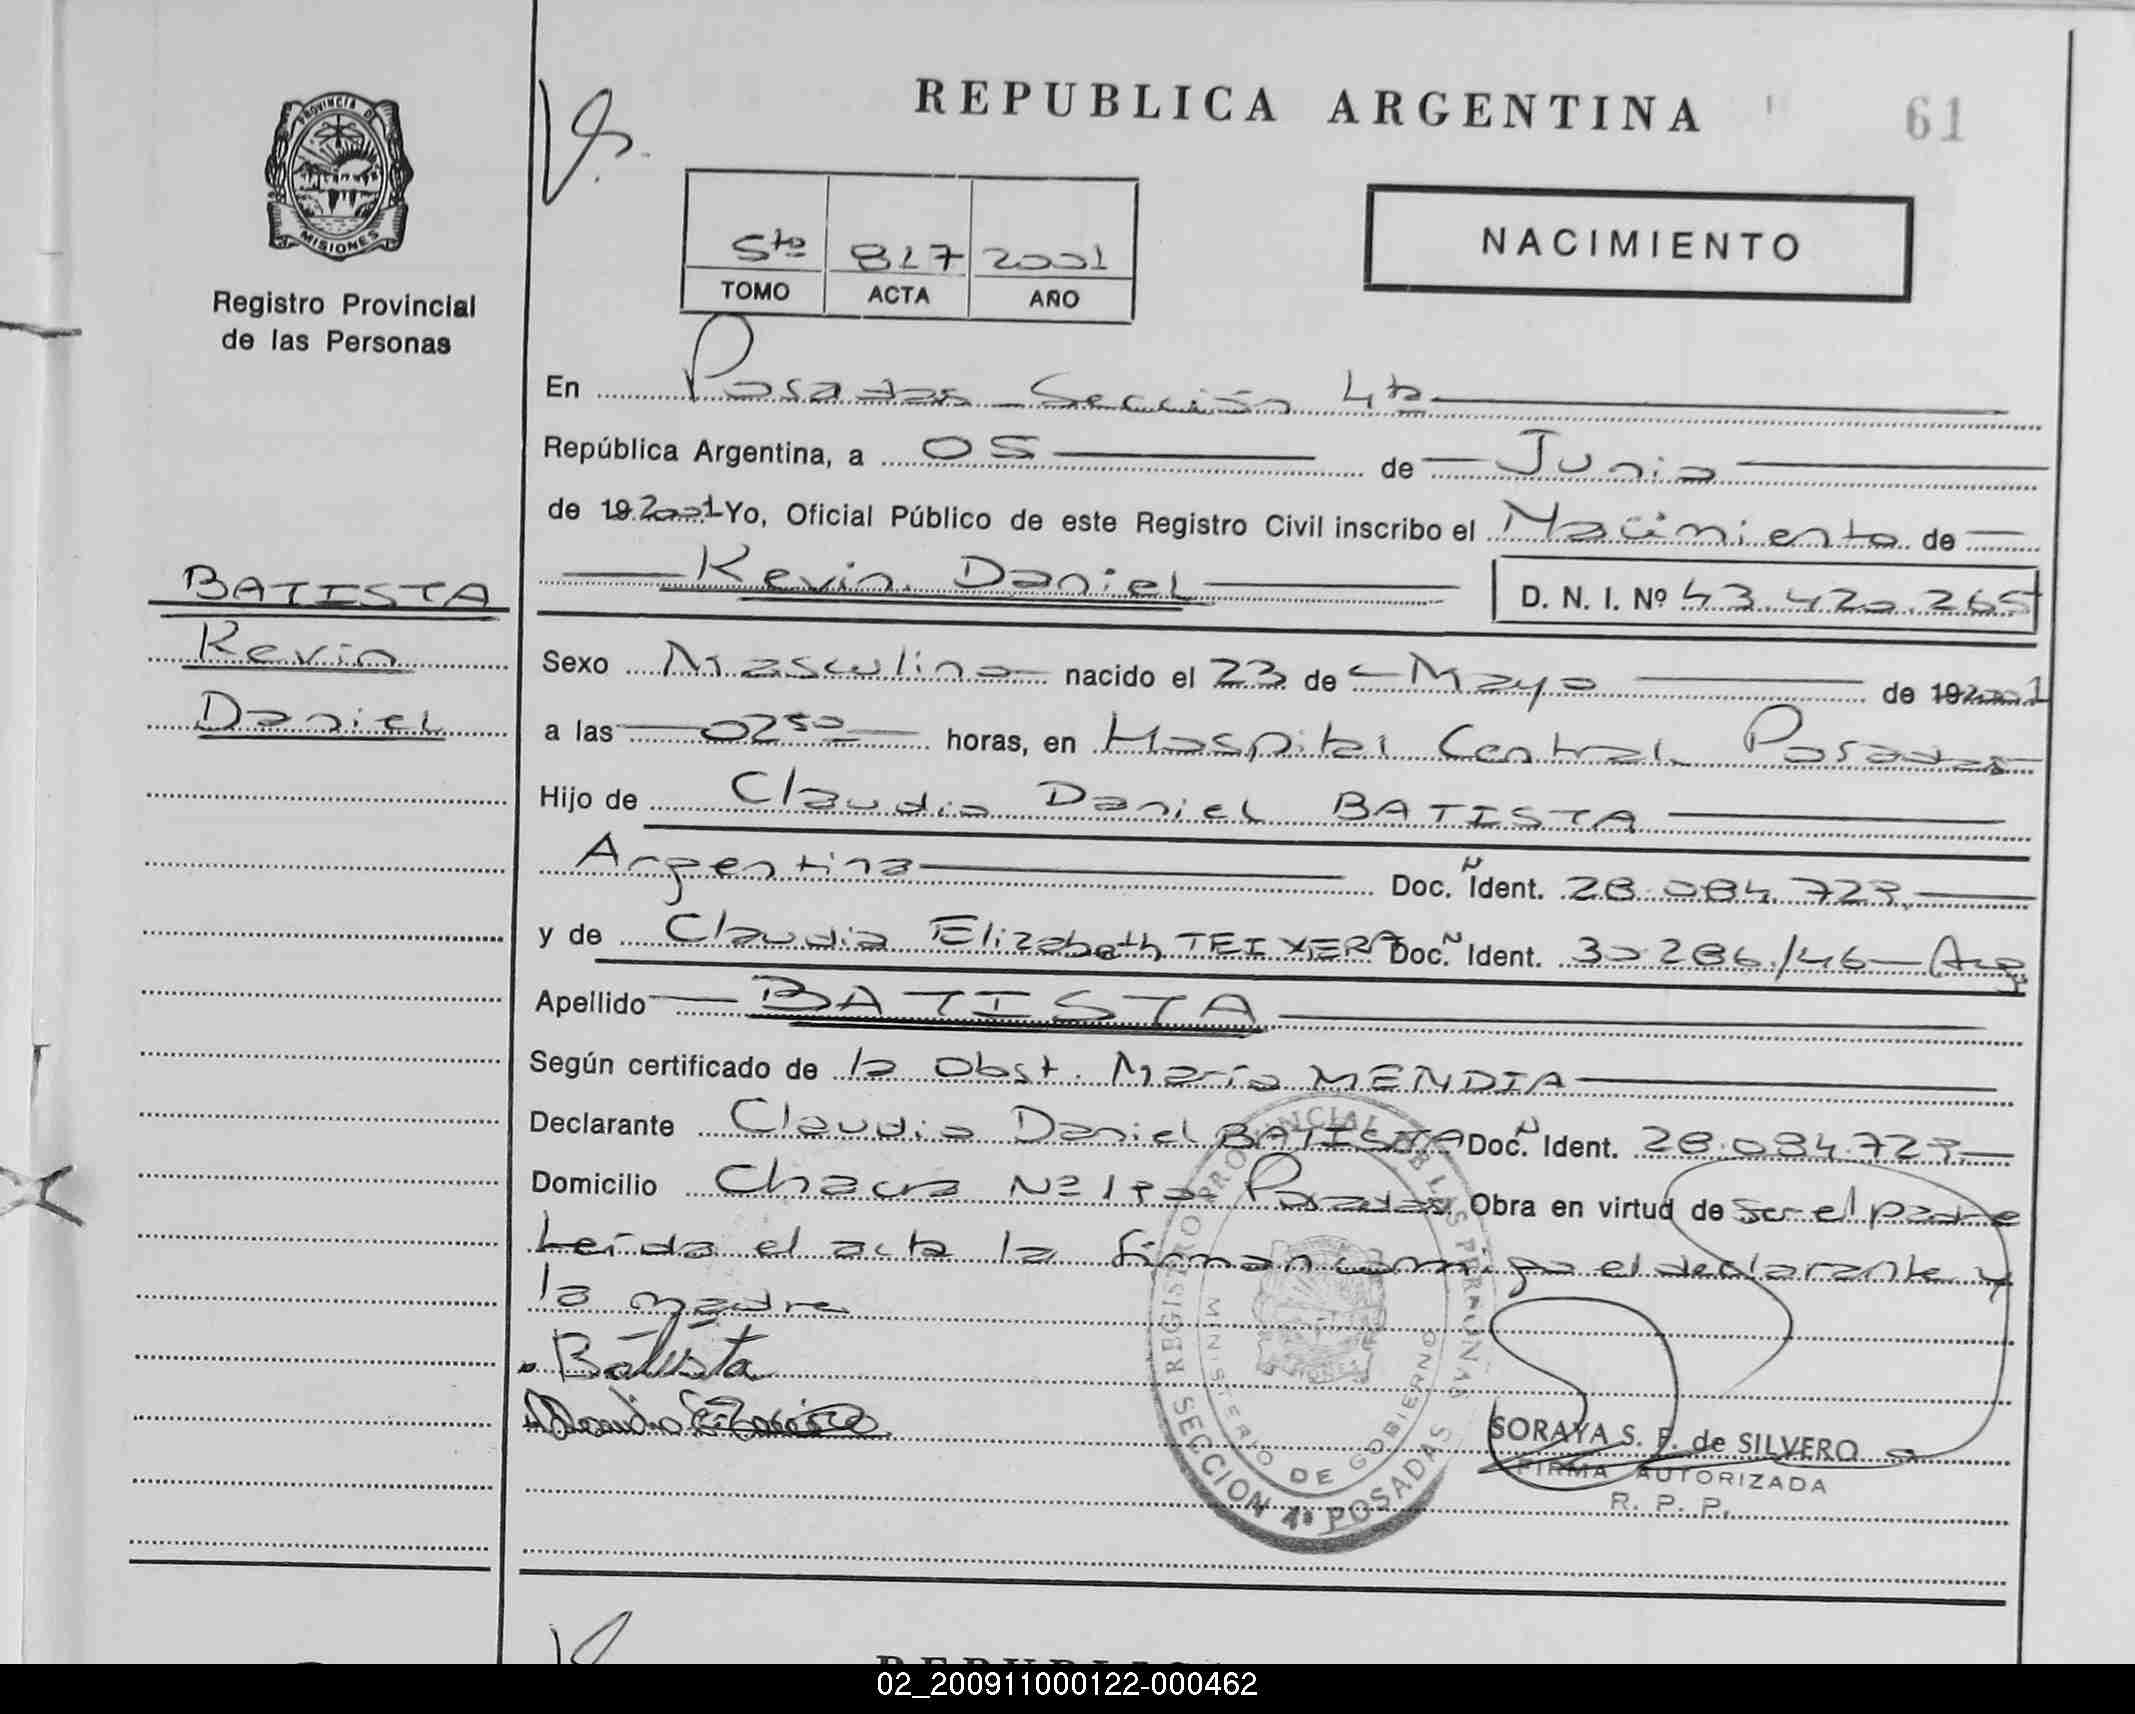 REPUBLICA ARGENTINA
61
PROVINCIA DE
MISIONES
Registro Provincial
de las Personas
5to 817 2001
TOMO ACTA AÑO
NACIMIENTO
En Posadas Sección 4ta
República Argentina, a 05 de Junio
de 19 2001 Yo, Oficial Público de este Registro Civil inscribo el Nacimiento de
Kevin Daniel
D. N. I. Nº 43.420.265
BATISTA
Kevin
Daniel
Sexo Masculino nacido el 23 de Mayo de 19 2001
a las 02 50 horas, en Hospital Central Posadas
Hijo de Claudio Daniel BATISTA
Argentina Doc. N Ident. 28.084.723
y de Claudia Elizabeth TEIXERA Doc. N Ident. 30.286.146 Arg
Apellido BATISTA
Según certificado de la Obst. María MENDIA
Declarante Claudio Daniel BATISTA Doc. N Ident. 28.084.723
Domicilio Chacra Nº Posadas Obra en virtud de Ser el padre
Leída el acta la firman conmigo el declarante y
la madre
Batista
REGISTRO PROVINCIAL DE LAS PERSONAS
MINISTERIO DE GOBIERNO
SECCION 4ª POSADAS
SORAYA S. F. de SILVERO
FIRMA AUTORIZADA
R. P. P.
02_200911000122-000462